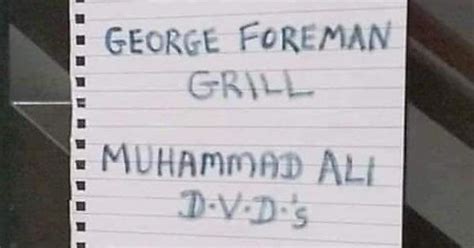 GEORGE FOREMAN
GRILL
MUHAMMAD ALI
D.V.D.'s